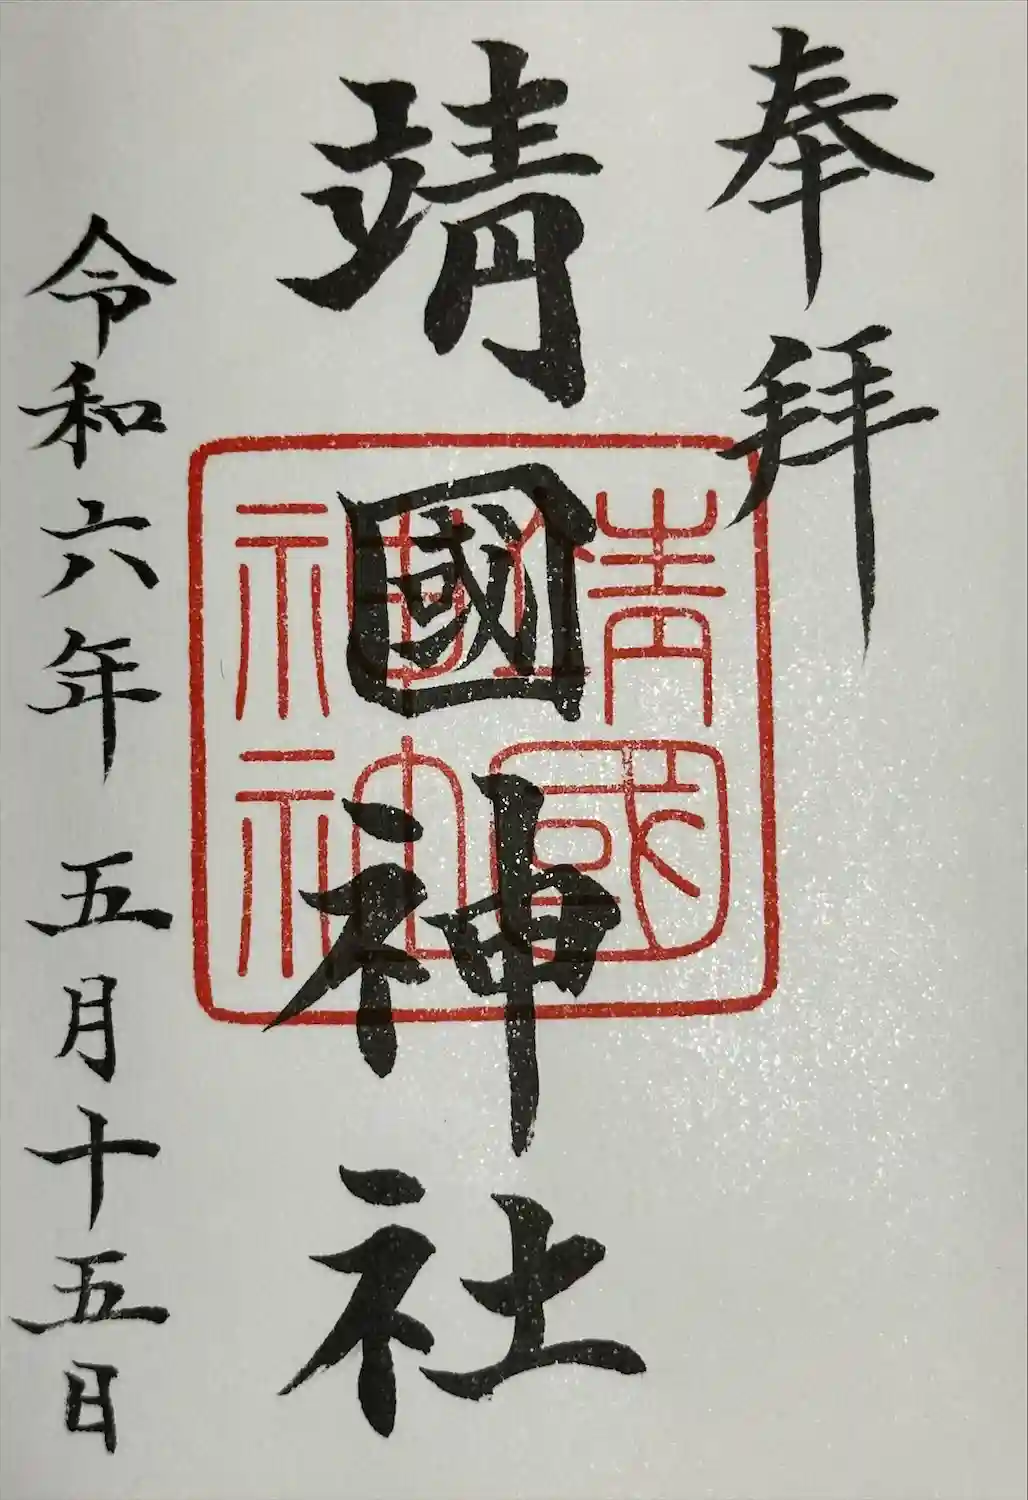 奉拝
靖國神社
靖國神社
令和六年五月十五日